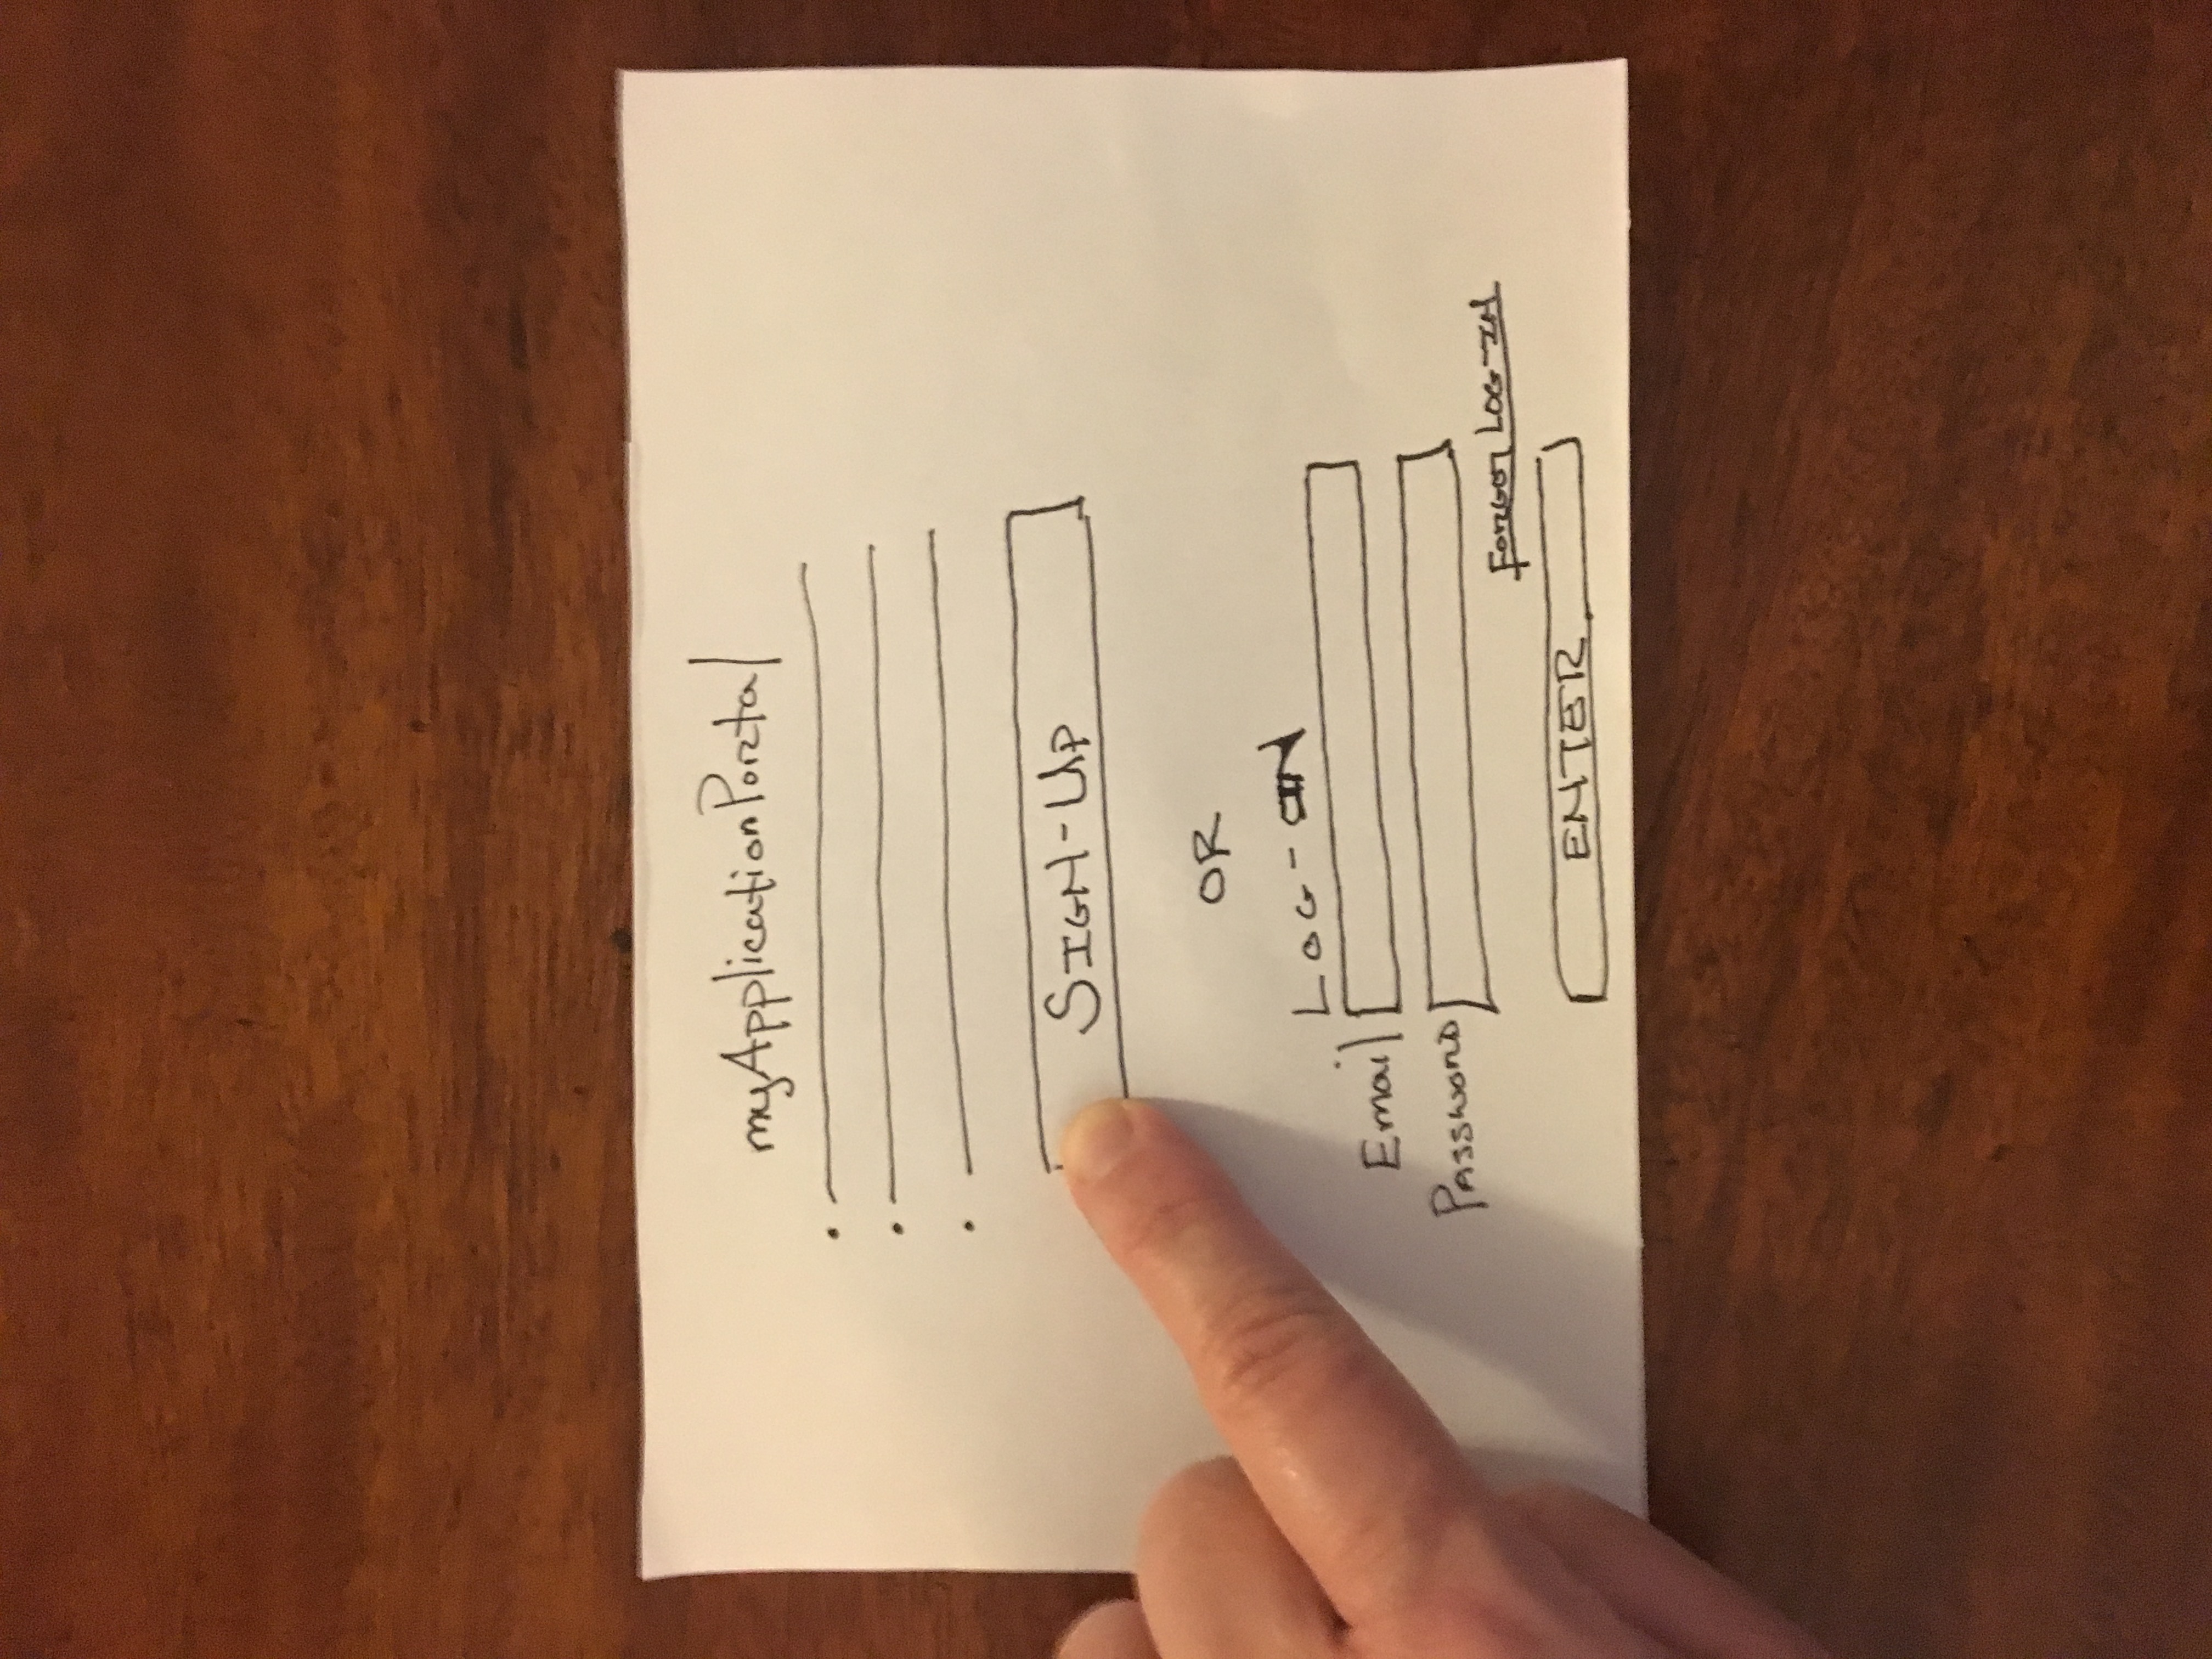 myApplicationPortal
SIGN-UP
OR
LOG-IN
Email
Password
Forgot LOG-IN
ENTER